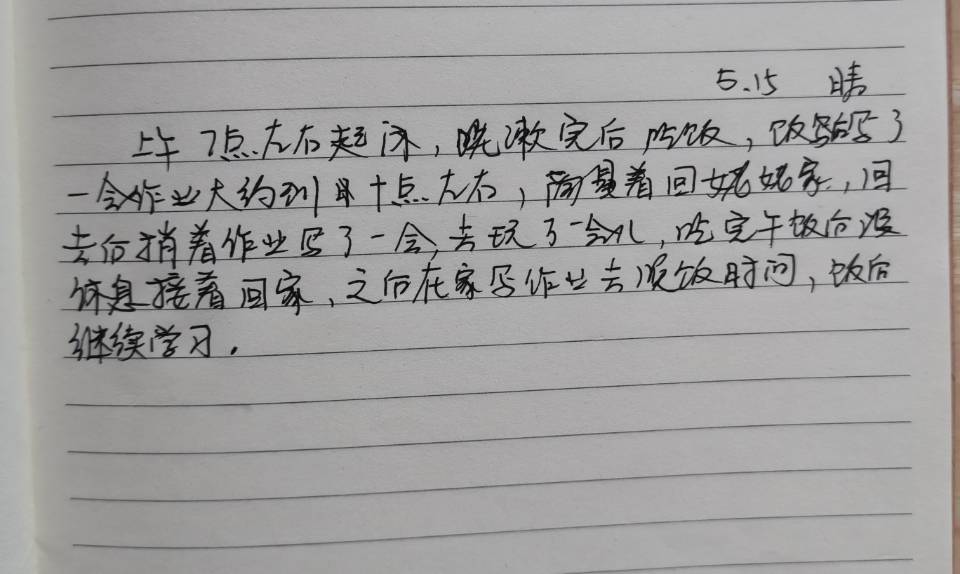 5.15 晴
上午7点左右起床，洗漱完后吃饭，饭后写了
一会作业大约到十点左右，着回姥姥家，回
去后捎着作业写了一会，去玩了一会儿，吃完午饭后没
休息接着回家，之后在家写作业去饭时间，饭后
继续学习。